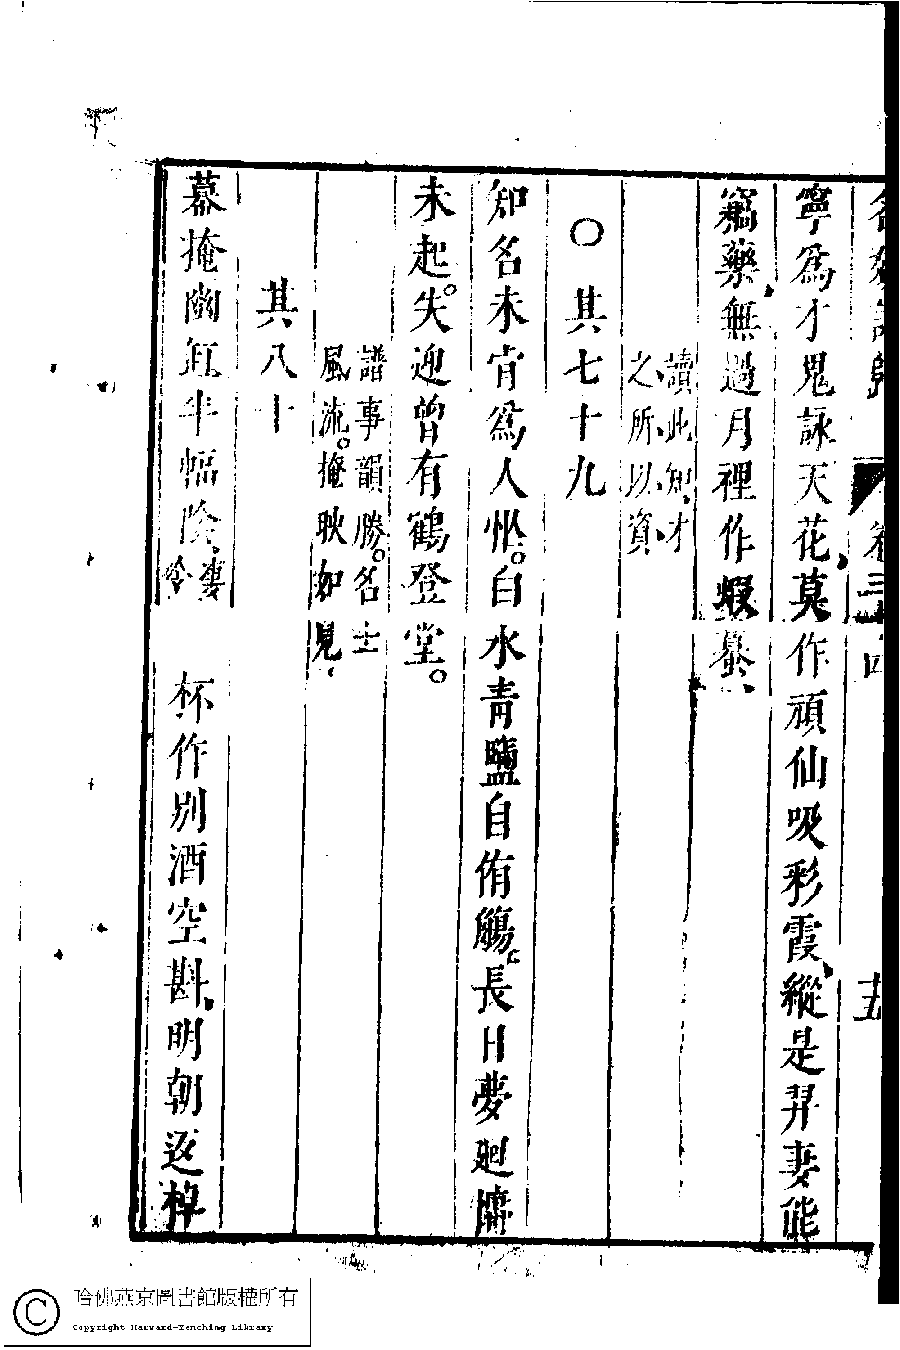 名媛詩歸 卷三十四 五
寧爲才鬼詠天花莫作頑仙吸彩霞縱是羿妻能
竊藥無過月裡作蝦蟇
讀此知才
之所以資
○其七十九
知名未宵爲人忙白水青鹽自侑觴長日夢廻慵
未起失迎曾有鶴登堂
譜事韻勝名士
風流掩映如見
其八十
幕掩幽缸半幅陰
凄
冷
杯作別酒空斟明朝返棹
哈佛燕京圖書館版權所有
Copyright Harvard-Yenching Library